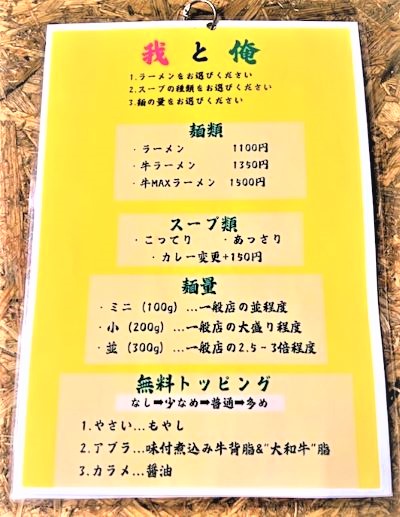 我と俺
1.ラーメンをお選びください
2.スープの種類をお選びください
3.麺の量をお選びください
麺類
・ラーメン 1100円
・牛ラーメン 1350円
・牛MAXラーメン 1500円
スープ類
・こってり ・あっさり
・カレー変更+150円
麺量
・ミニ（100g）…一般店の並程度
・小（200g）…一般店の大盛り程度
・並（300g）…一般店の2.5~3倍程度
無料トッピング
なし➡少なめ➡普通➡多め
1.やさい…もやし
2.アブラ…味付煮込み牛背脂&"大和牛"脂
3.カラメ…醤油